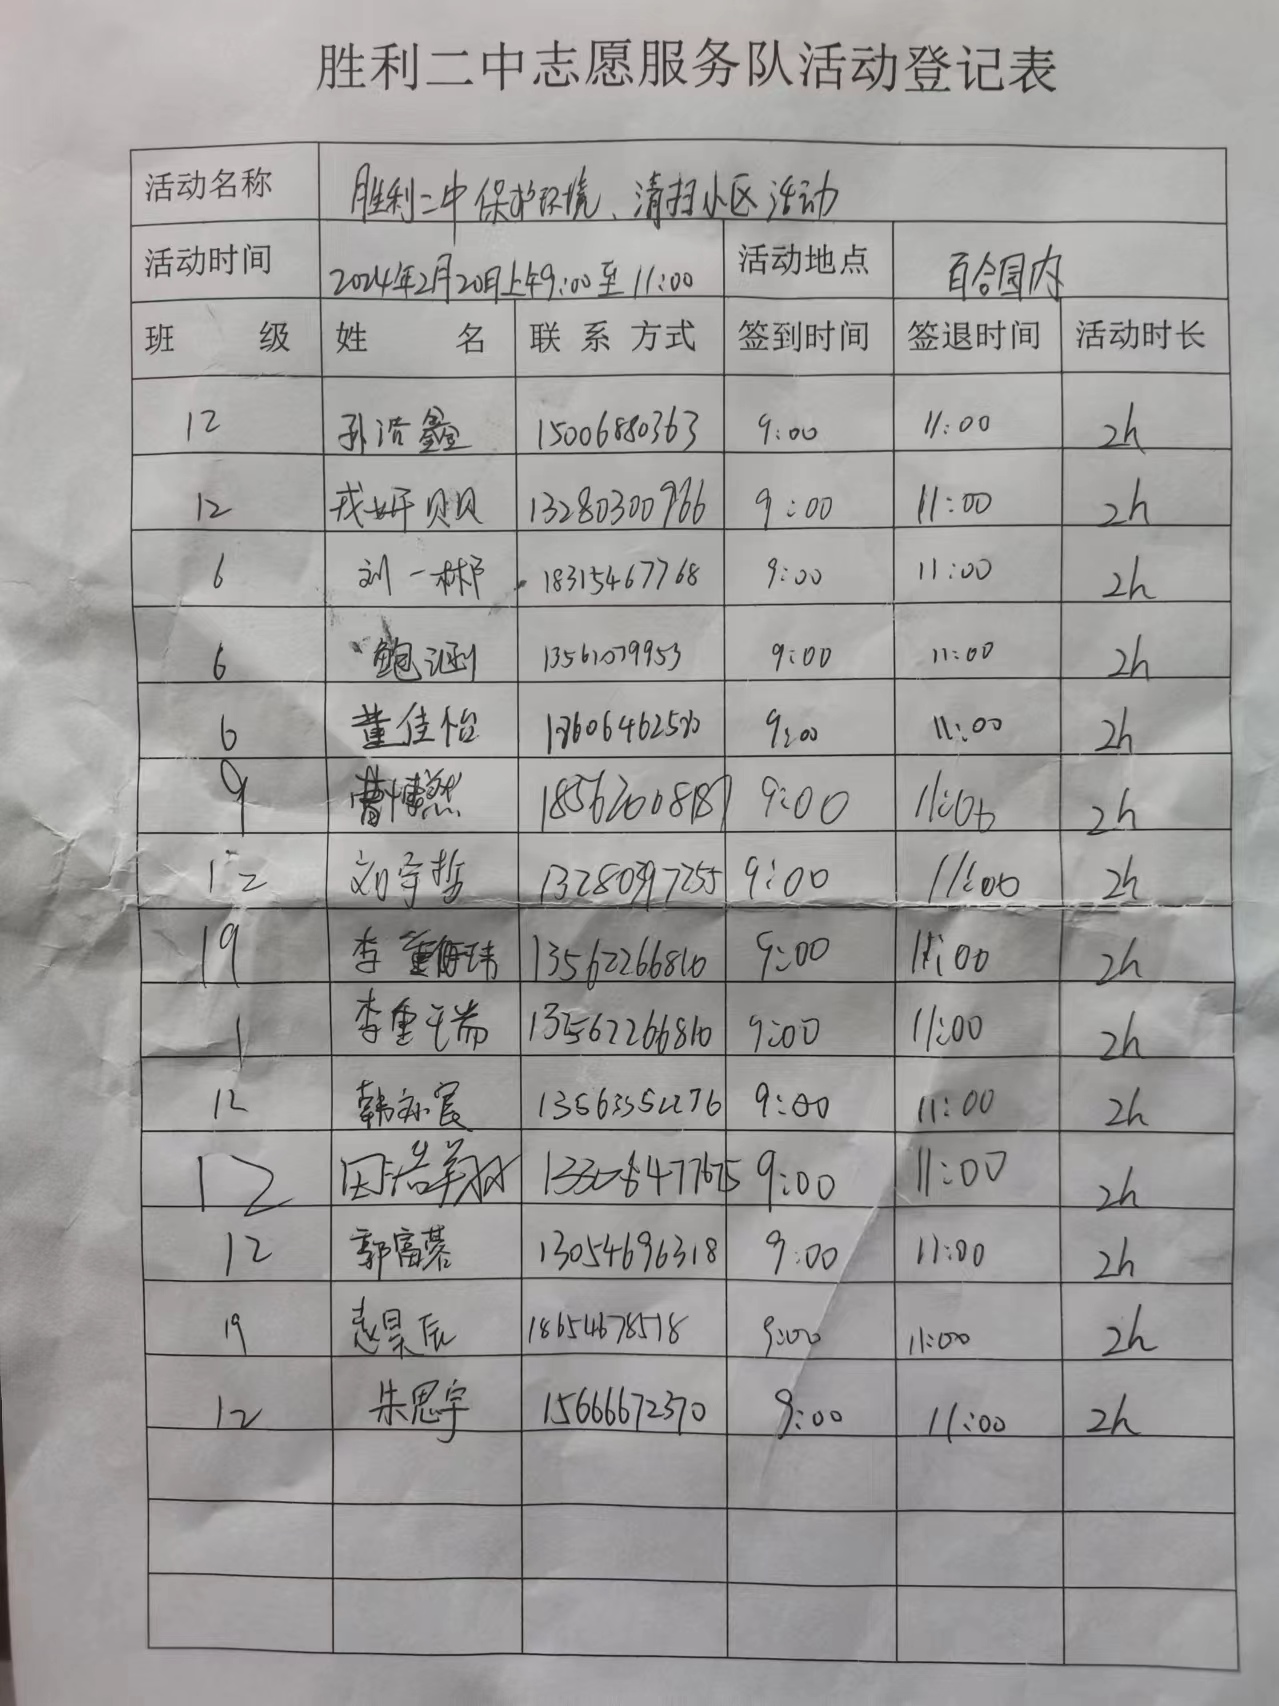 胜利二中志愿服务队活动登记表
活动名称 胜利二中保护环境、清扫小区活动
活动时间 2024年2月20日上午9:00至11:00 活动地点 百合园内
班 级 姓 名 联系方式 签到时间 签退时间 活动时长
12 孙浩鑫 15006880363 9:00 11:00 2h
12 戎妍贝贝 13280300966 9:00 11:00 2h
6 刘一彬 18315467768 9:00 11:00 2h
6 鲍涵 13561079953 9:00 11:00 2h
6 董佳怡 9:00 11:00 2h
9 曹 9:00 11:00 2h
12 刘宇哲 13280397255 9:00 11:00 2h
19 李 13562266810 9:00 11:00 2h
1 李 13562266810 9:00 11:00 2h
12 韩 13563352276 9:00 11:00 2h
12 浩翔 9:00 11:00 2h
12 郭富蓉 13054696318 9:00 11:00 2h
19 赵昊辰 18654678518 9:00 11:00 2h
12 朱思宇 15666672370 9:00 11:00 2h